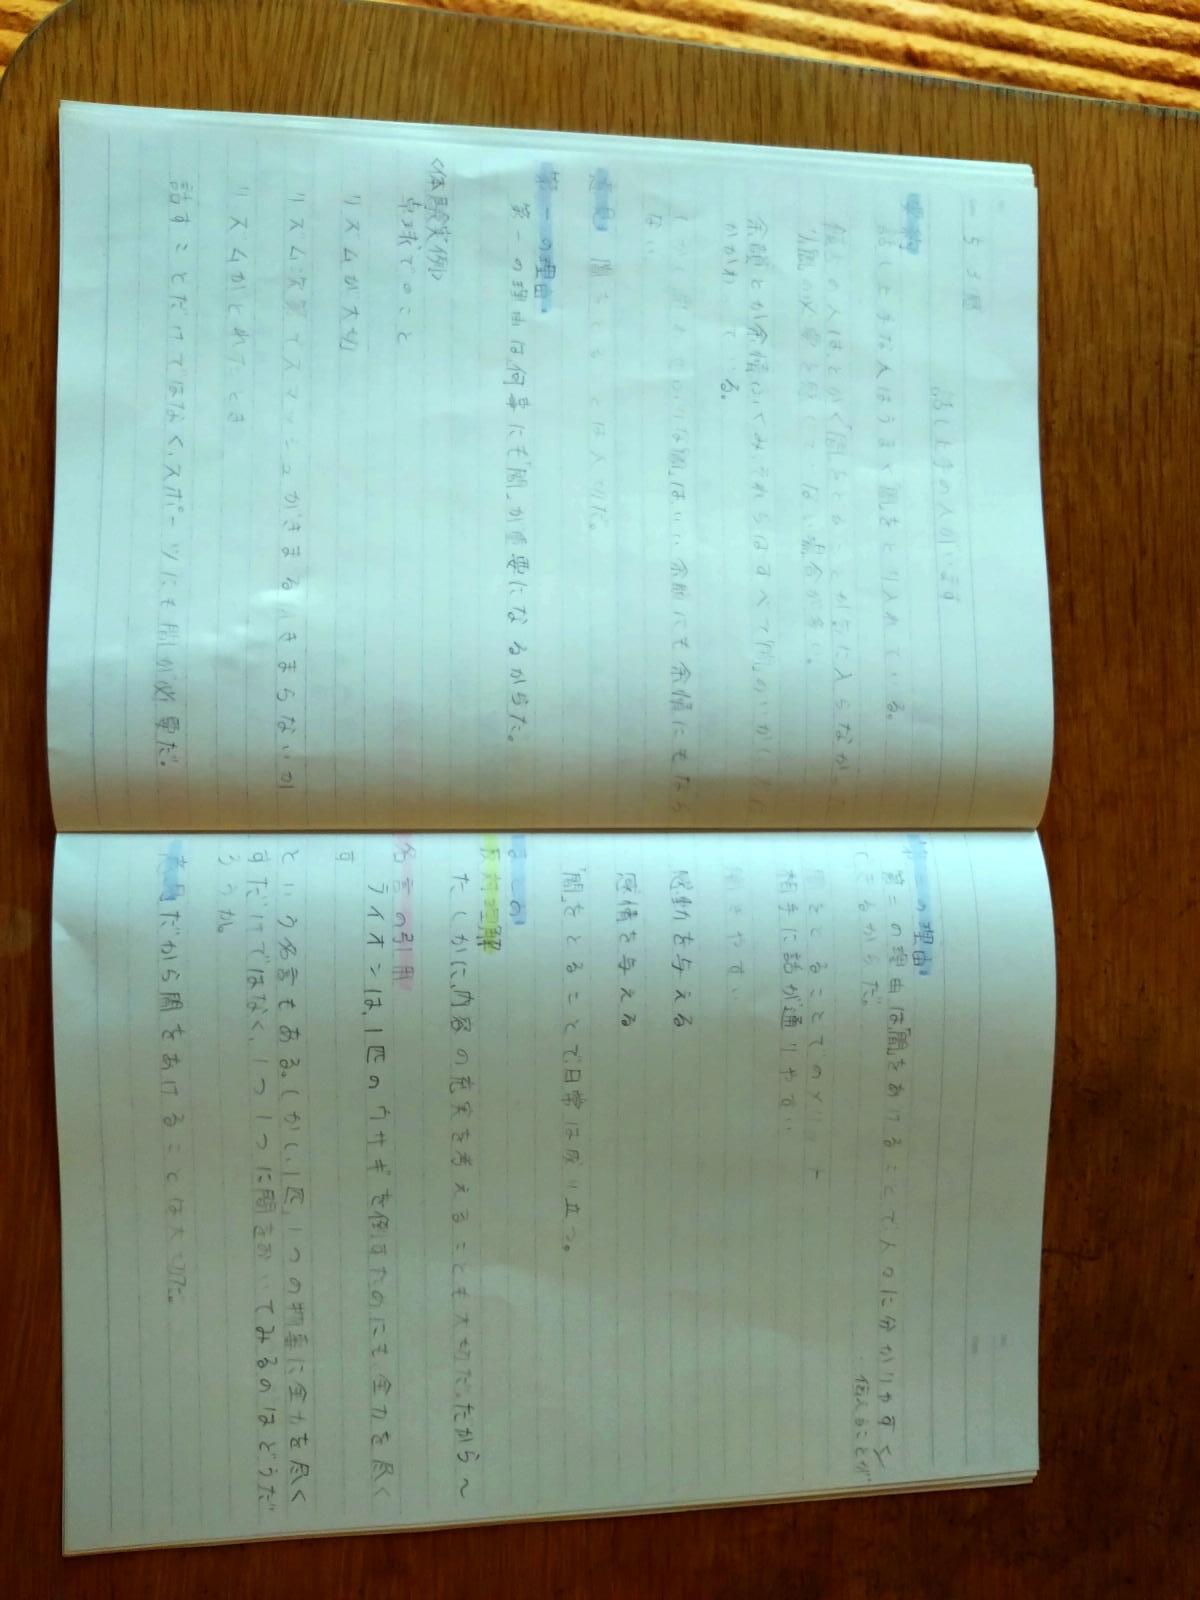 話し上手の人がいます
要約
話し上手な人はうまく「間」をとり入れている。
の人はとかく「間」をとることが気に入らなかったり
「間」の必要を感じて いない場合が多い。
余韻とか余情 それらはすべて「間」のいかしかたに
かかわっている。
しかし な「間」は 余韻にも余情にもなら
ない
意見 間をとることは大切だ。
第一の理由
第一の理由は何事にも「間」が重要になるからだ。
〈体験実例〉
卓球でのこと
リズムが大切
リズム次第でスマッシュがきまるかきまらないか
リズムがとれたとき
話すことだけではなく、スポーツにも間が必要だ。
第二の理由
第二の理由は「間」をあけることで人々に分かりやすく
伝えることが
できるからだ。
間をとることでのメリット
相手に話が通りやすい
聞きやすい
感動を与える
感情を与える
「間」をとることで日常は成り立つ。
まとめ
反対理解
たしかに、内容の充実を考えることも大切だ。だから～
名言の引用
ライオンは、1匹のウサギを倒すためにも全力を尽く
す
という名言もある。しかし、「1匹」1つの物事に全力を尽く
すだけではなく、1つ1つに間をおいてみるのはどうだ
ろうか。
意見 だから間をあけることは大切だ。